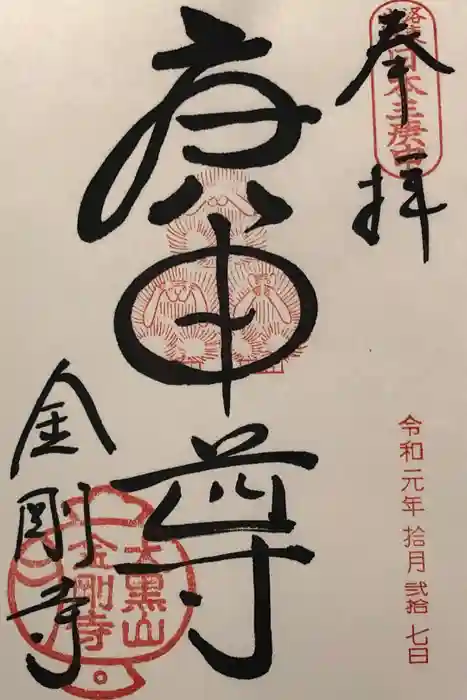 奉拝
洛東日本三庚申
庚申尊
令和元年 拾月 弐拾七日
金剛寺
大黒山
金剛寺